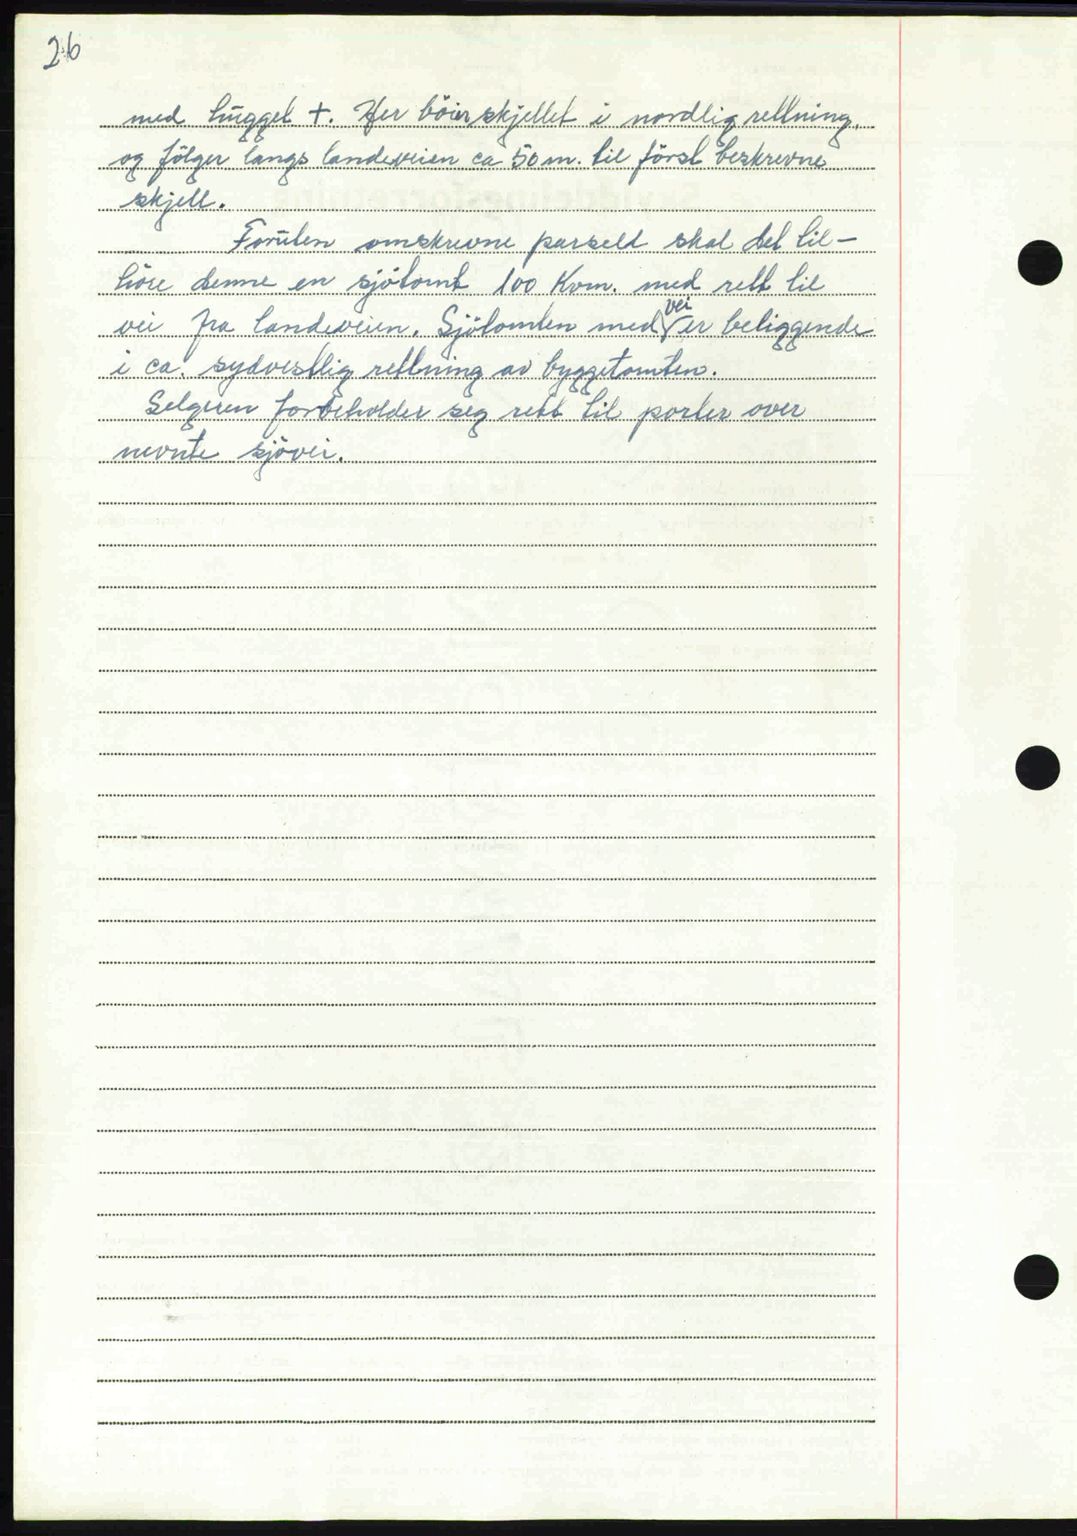 26
med hugget +. Her böier skjellet i nordlig rettning,
og fölger langs landeveien ca 50 m. til först beskrevne
skjell.
Foruten omskrevne parseld skal det til-
höre denne en sjötomt 100 Kvm. med rett til
vei fra landeveien. Sjötomten med vei er beliggende
i ca. sydvestlig rettning av byggetomten.
Selgeren forbeholder seg rett til porter over
nevnte sjövei.